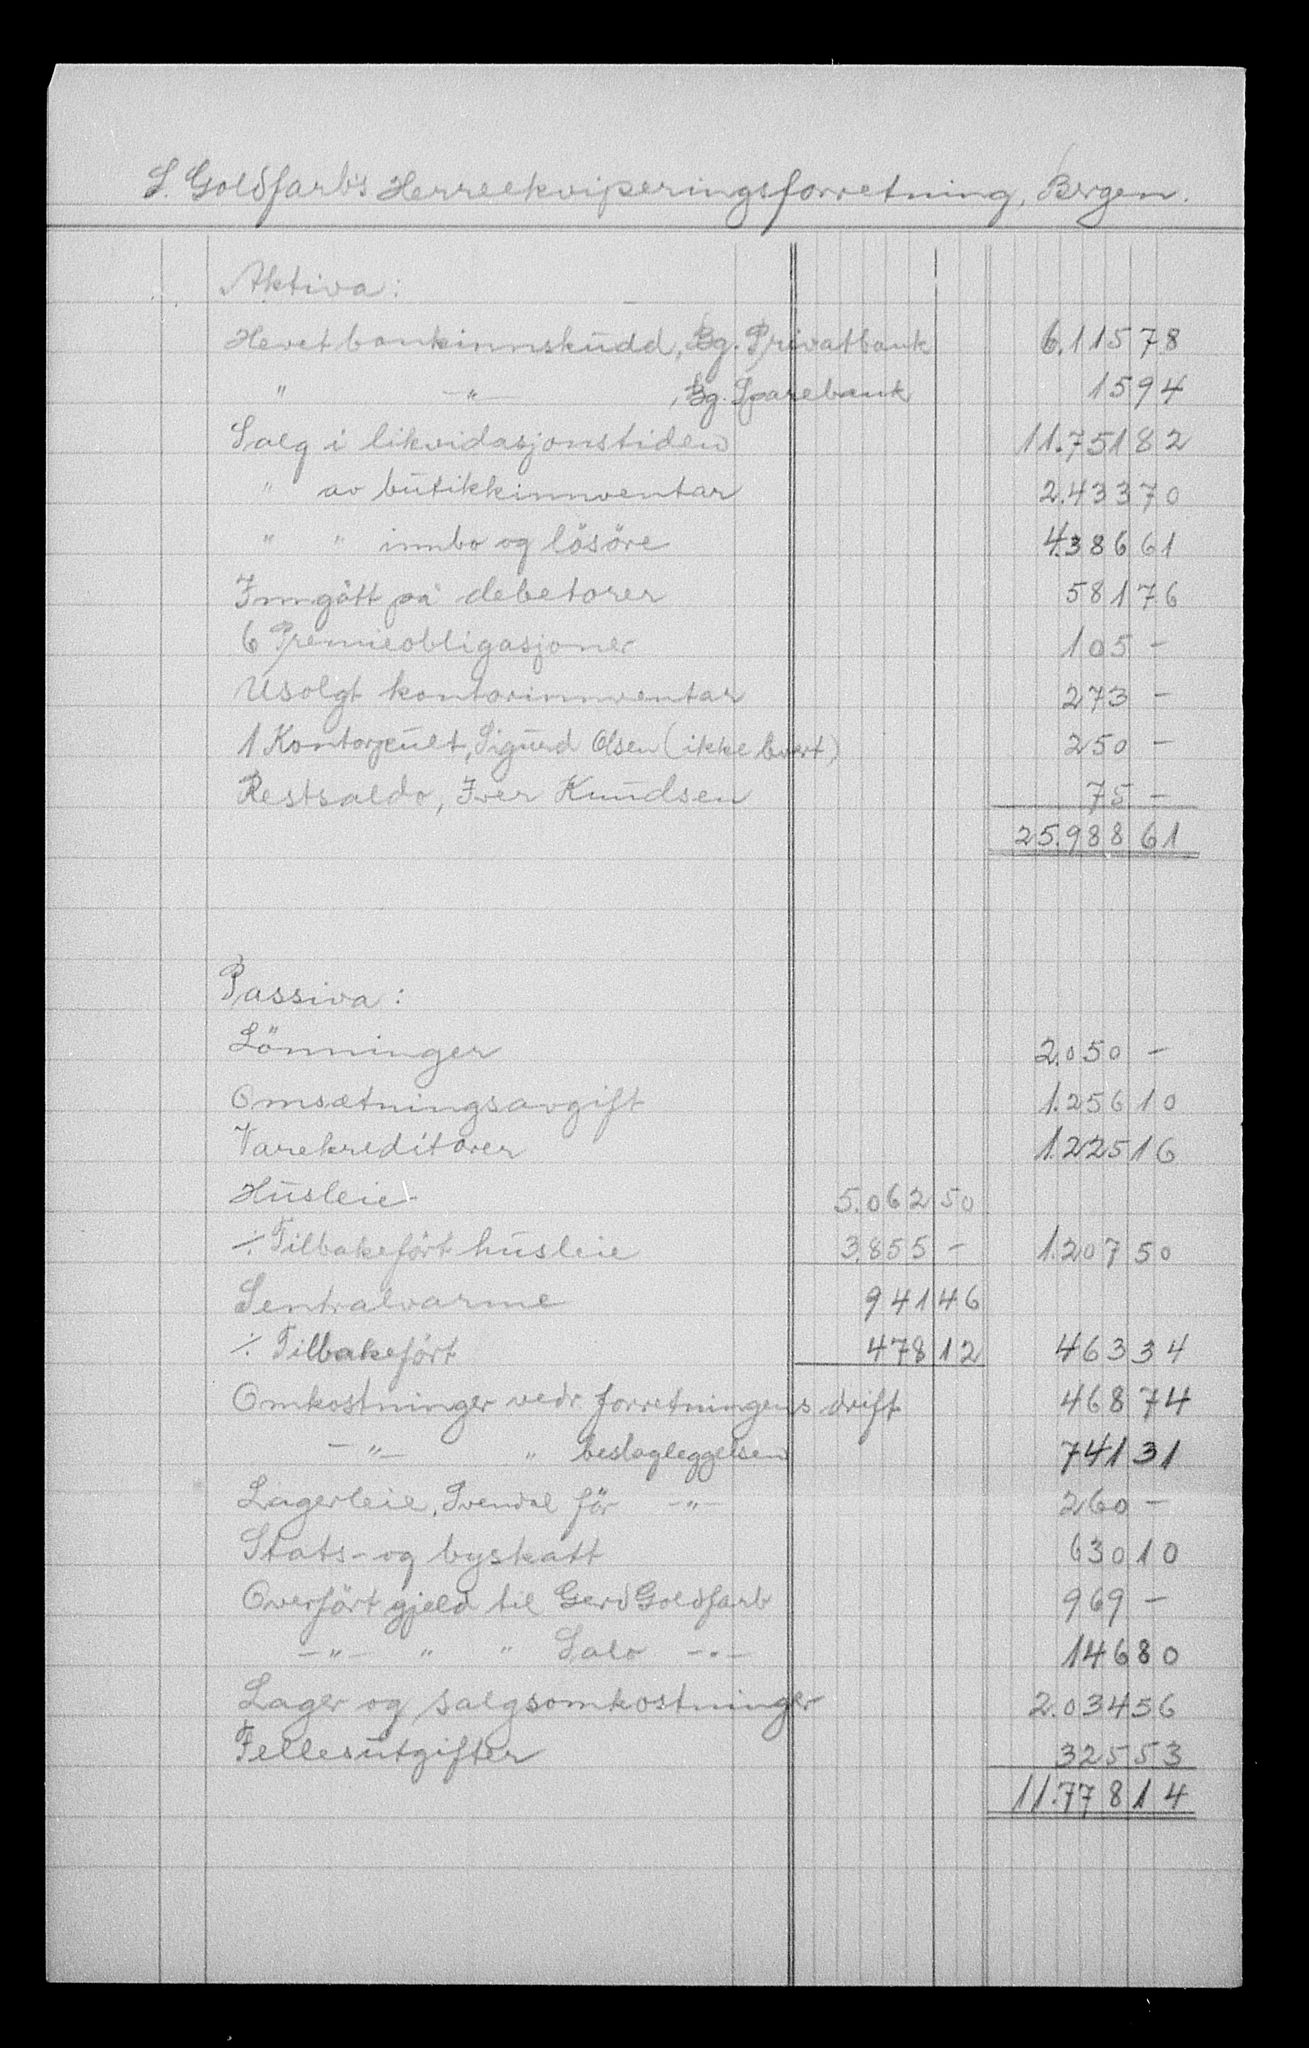 S. Goldfarb's Herreekviperingsforretning, Bergen.
Aktiva:
Hevet bankinnskudd, Bg. Privatbank 6.115 78
" -"- , Bg. Sparebank 15 94
Salg i likvidasjonstiden 11.751 82
" av butikkinnventar 2.433 70
" " innbo og lösöre 4.386 61
Inngått på debetorer 581 76
6 Premieobligasjoner 105 -
Usolgt kontorinnventar 273 -
1 Kontorpult, Sigurd Olsen (ikke levert) 250 -
Restsaldo, Iver Knudsen 75 -
25.988 61
Passiva:
Lönninger 2.050 -
Omsætningsavgift 1.256 10
Varekreditorer 1.225 16
Husleie 5.062 50
·/. Tilbakefört husleie 3.855 - 1.207 50
Sentralvarme 941 46
·/. Tilbakefört 478 12 463 34
Omkostninger vedr. forretningens drift 468 74
-"- " beslagleggelsen 741 31
Lagerleie, Svendal för -"- 260 -
Stats- og byskatt 630 10
Overfört gjeld til Gerd Goldfarb 969 -
-"- " " Salo -"- 146 80
Lager og salgsomkostninger 2.034 56
Fellesutgifter 325 53
11.778 14